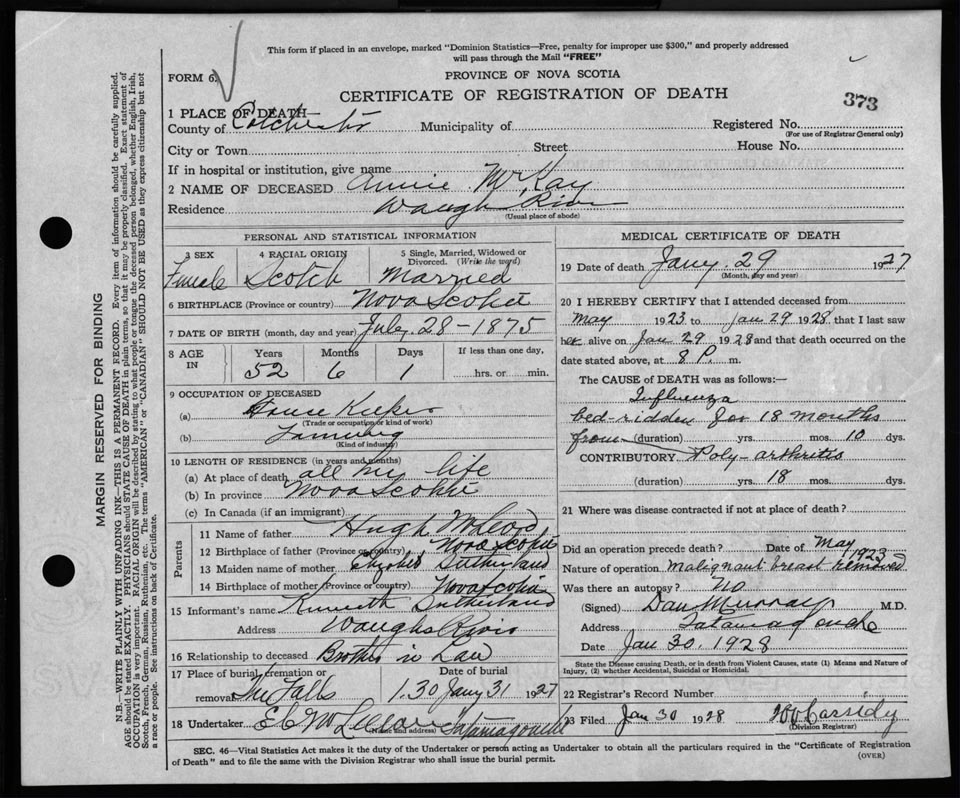 This form if placed in an envelope, marked "Dominion Statistics—Free, penalty for improper use $300," and properly addressed
will pass through the Mail "FREE"
FORM 6.
PROVINCE OF NOVA SCOTIA
CERTIFICATE OF REGISTRATION OF DEATH
373
1 PLACE OF DEATH
County of Colchester Municipality of Registered No.
(For use of Registrar General only)
City or Town Street House No.
If in hospital or institution, give name
2 NAME OF DECEASED Annie McKay
Residence Waugh River
(Usual place of abode)
PERSONAL AND STATISTICAL INFORMATION
3 SEX 4 RACIAL ORIGIN 5 Single, Married, Widowed or
Divorced. (Write the word)
Female Scotch Married
6 BIRTHPLACE (Province or country) Nova Scotia
7 DATE OF BIRTH (month, day and year) July 28-1875
8 AGE IN Years Months Days If less than one day,
52 6 1 hrs. or min.
9 OCCUPATION OF DECEASED
(a) House Keeper
(Trade or occupation or kind of work)
(b)
(Kind of industry)
10 LENGTH OF RESIDENCE (in years and months)
(a) At place of death all her life
(b) In province Nova Scotia
(c) In Canada (if an immigrant)
Parents
11 Name of father Hugh McLeod
12 Birthplace of father (Province or country) Nova Scotia
13 Maiden name of mother Sutherland
14 Birthplace of mother (Province or country) Nova Scotia
15 Informant's name Kenneth Sutherland
Address Waughs River
16 Relationship to deceased Brother in Law
17 Place of burial, cremation or Date of burial
removal The Falls 1.30 Jany 31 1927
18 Undertaker Tatamagouche
(Name and address)
MEDICAL CERTIFICATE OF DEATH
19 Date of death Jany. 29 1927
(Month, day and year)
20 I HEREBY CERTIFY that I attended deceased from
May 1923 to Jan 29 1928 that I last saw
her alive on Jan 29 1928 and that death occurred on the
date stated above, at 8 P. m.
The CAUSE OF DEATH was as follows:—
Influenza
bed-ridden for 18 months
from (duration) yrs. mos. 10 dys.
CONTRIBUTORY Poly-arthritis
(duration) yrs. 18 mos. dys.
21 Where was disease contracted if not at place of death?
Did an operation precede death? Date of May 1923
Nature of operation malignant breast removed
Was there an autopsy? No
(Signed) Dan Murray M.D.
Address Tatamagouche
Date Jan 30. 1928
State the Disease causing Death, or in death from Violent Causes, state (1) Means and Nature of
Injury, (2) whether Accidental, Suicidal or Homicidal.
22 Registrar's Record Number
23 Filed Jan 30 1928 Cassidy
(Division Registrar)
SEC. 46—Vital Statistics Act makes it the duty of the Undertaker or person acting as Undertaker to obtain all the particulars required in the "Certificate of Registration
of Death" and to file the same with the Division Registrar who shall issue the burial permit.
(OVER)
MARGIN RESERVED FOR BINDING
N.B.—WRITE PLAINLY WITH UNFADING INK—THIS IS A PERMANENT RECORD. Every item of information should be carefully supplied.
AGE should be stated EXACTLY. PHYSICIANS should STATE CAUSE OF DEATH in plain terms, so that it may be properly classified. Exact statement of
OCCUPATION is very important. RACIAL ORIGIN will be described by stating to what people or tongue the deceased person belonged, whether English, Irish,
Scotch, French, German, Russian, Ruthenian, etc. The terms "AMERICAN" or "CANADIAN" SHOULD NOT BE USED as they express citizenship but not
a race or people. See instructions on back of Certificate.